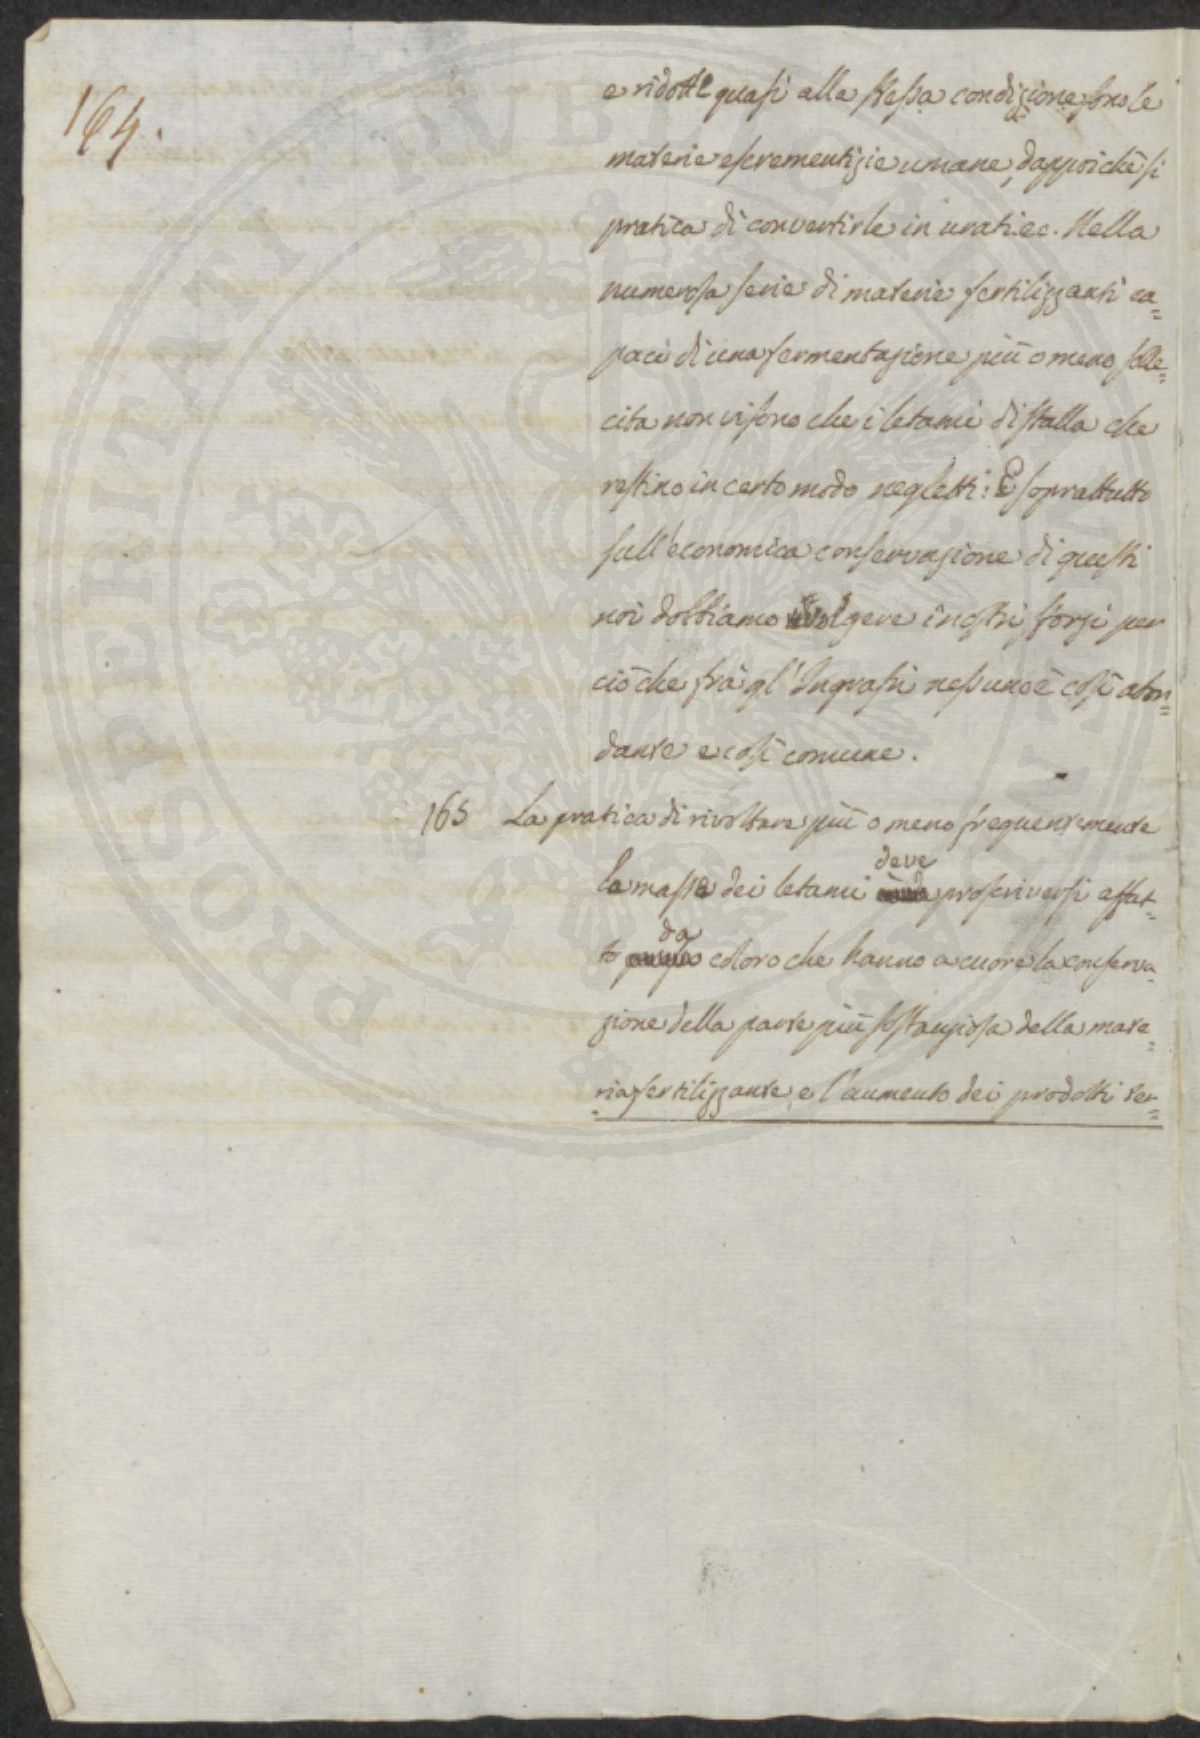 164.
e ridotte quasi alla stessa condizione sono le
materie escrementizie umane, dappoichè si
pratica di convertirle in urati ec. Nella
numerosa serie di materie fertilizzanti ca=
paci di una fermentazione più o meno solle=
cita non vi sono che i letami di stalla che
restino in certo modo negletti: E soprattutto
sull'economica conservazione di questi
noi dobbiamo volgere i nostri sforzi per
ciò che frà gl'Ingrassi nessuno è così abon=
dante e così comune.
165 La pratica di rivoltare più o meno frequentemente
deve
la massa dei letami proscriversi affat=
da
to coloro che hanno a cuore la conserva=
zione della parte più sostanziosa della mate=
ria fertilizzante e l'aumento dei prodotti ter=
PROSPERITATI PUBLICAE